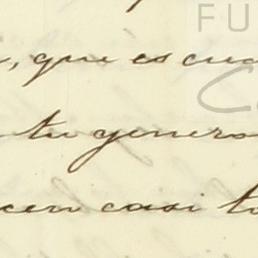 FU
C
, que es cua
tu genero
cen casi to